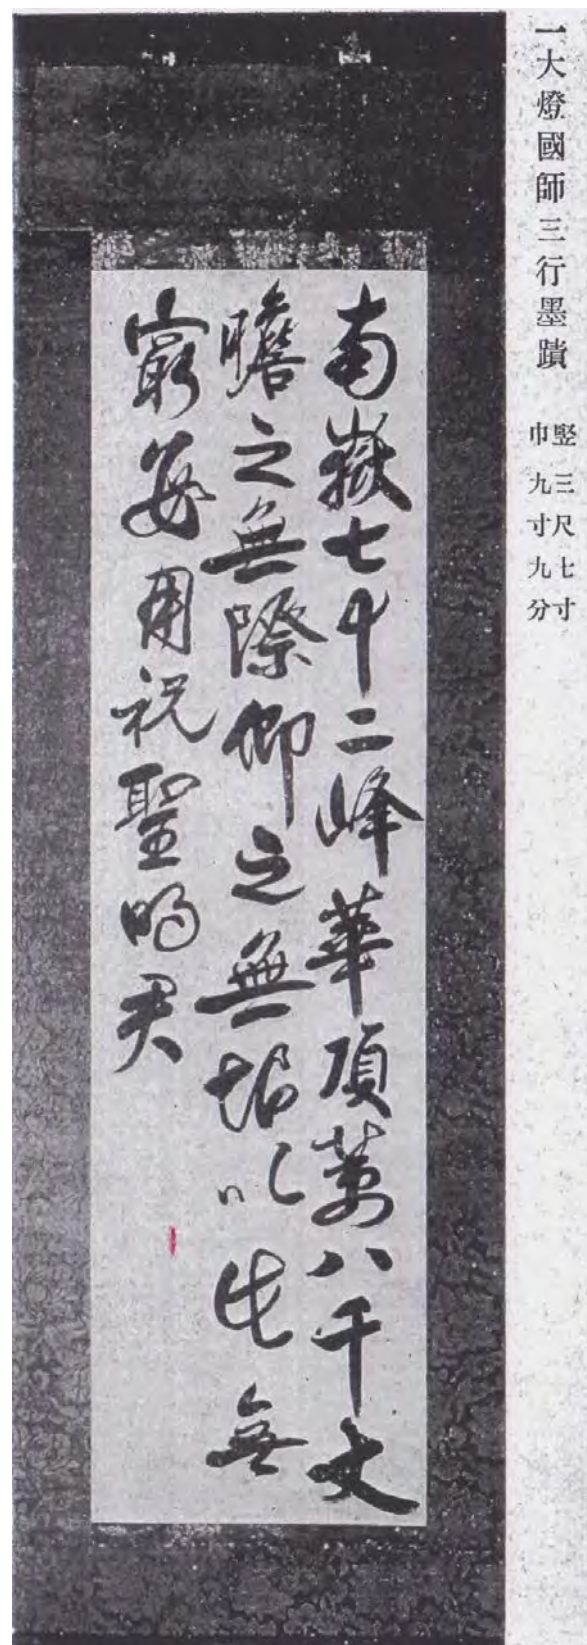 一大燈國師三行墨蹟
竪三尺七寸
巾九寸九分
南嶽七十二峰華頂萬八千丈
瞻之無際仰之無垠以此無
窮用祝聖明君